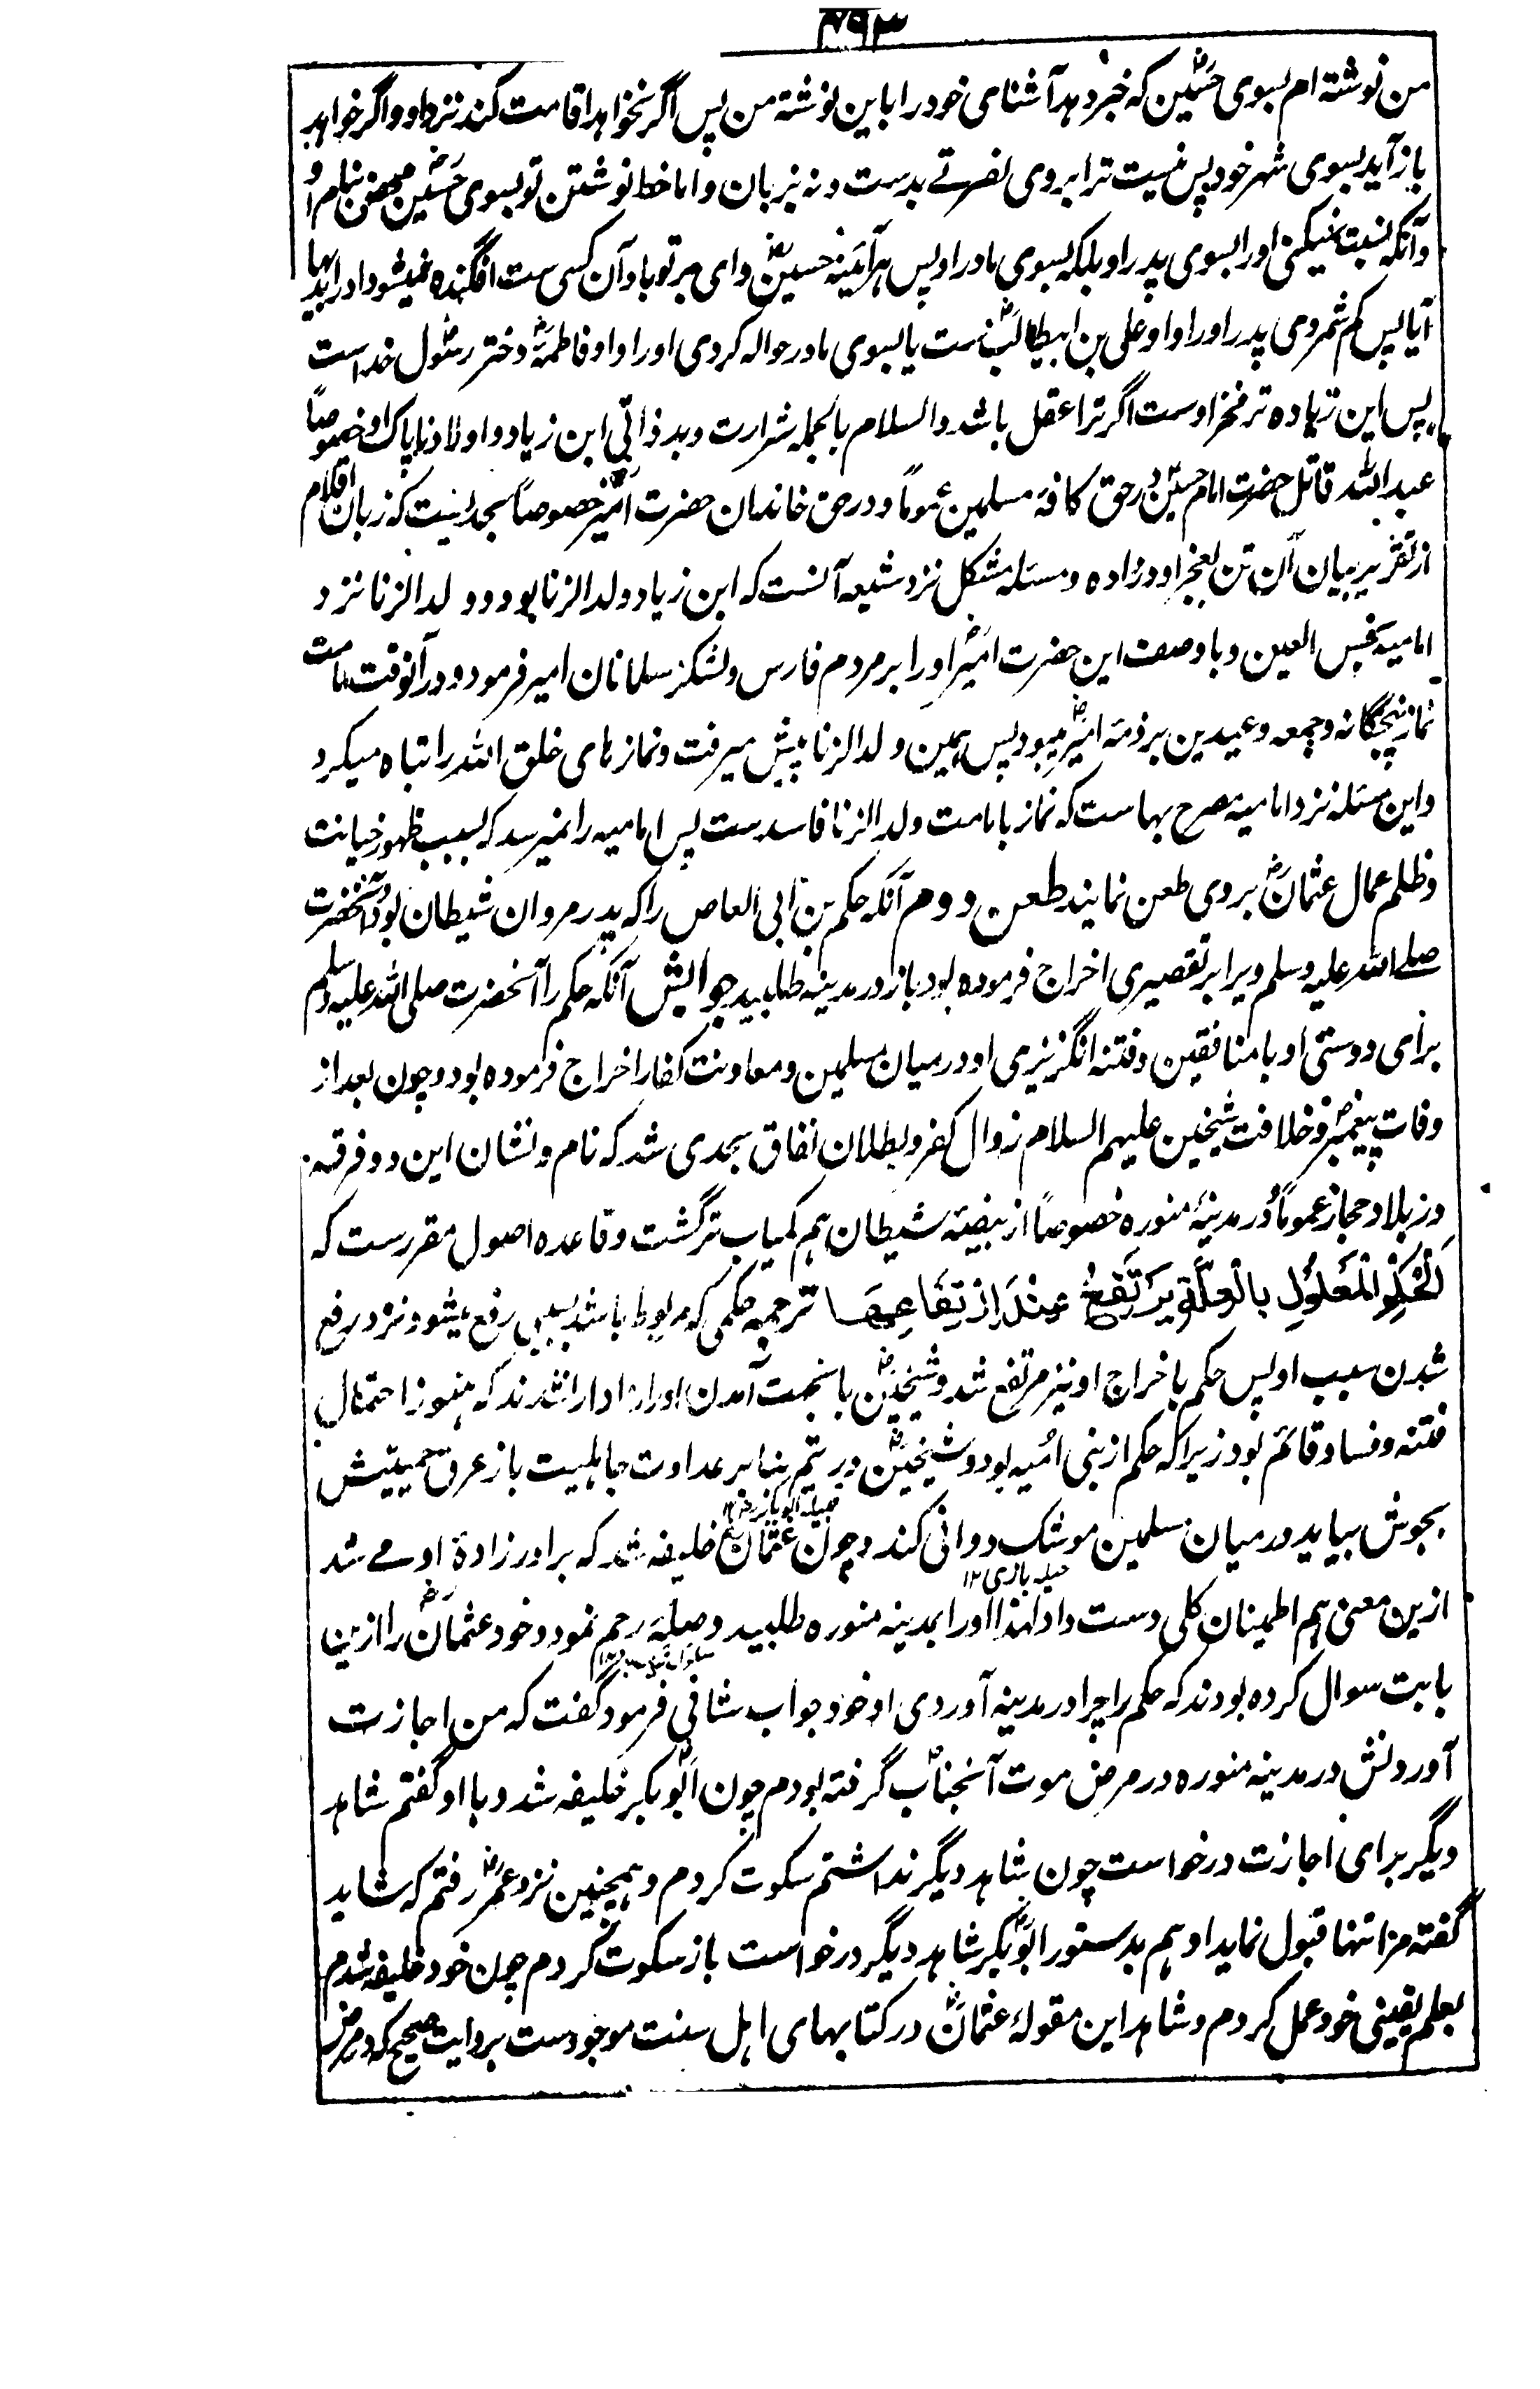 ۴۹۳
من نوشته ام بسوی حسینؓ که خبر دهد آشنای خود را باین نوشته من پس اگر نخواهد اقامت کند نزد او و اگر خواهد
باز آید بسوی شهر خود پس نیست ترا بروی نصرتے بدست و نه بزبان و اما خط نوشتن تو بسوی حسینؓ محض بنام او
و آنکه نسبت نمیکنی او را بسوی پدر او بلکه بسوی مادر او پس هر آئینه حسینؓ وای بر تو باد آن کسی ست افگنده نمیشود او را
آیا پس کم شمردی پدر او را و او علی بن ابیطالبؓ ست یا بسوی مادر حواله کردی او را و او فاطمهؓ دختر رسولؐ خداست
پس این زیاده تر فخر اوست اگر ترا عقل باشد والسلام بالجمله شرارت و بد ذاتی ابن زیاد و اولاد ناپاک او خصوصاً
عبد الله قاتل حضرت امام حسینؓ در حق کافهٔ مسلمین عموماً و در حق خاندان حضرت امیرؓ خصوصاً بحدیست که زبان اقلام
از تقریر بیان آن تن بعجز در داده و مسئله مشکل نزد شیعه آنست که ابن زیاد ولد الزنا بود و ولد الزنا نزد
امامیه نجس العین و با وصف این حضرت امیرؓ او را بر مردم فارس و لشکر مسلمانان امیر فرمود و در آنوقت امامت
نماز پنجگانه و جمعه و عیدین بر ذمهٔ امیر میبود پس همین ولد الزنا پیش میرفت و نماز های خلق الله را تباه میکرد
و این مسئله نزد امامیه مصرح بهاست که نماز با امامت ولد الزنا فاسد ست پس امامیه را نمیرسد که بسبب ظهور خیانت
و ظلم عمال عثمانؓ بروی طعن نمایند طعن دوم آنکه حکم بن ابی العاص را که پدر مروان شیطان بود و آنحضرت
صلے الله علیه وسلم ویرا بر تقصیری اخراج فرموده بود باز در مدینه طلبید جوابش آنکه حکم را آنحضرت صلی الله علیه وسلم
برای دوستی او با منافقین و فتنه انگیزی او در میان مسلمین و معاونت کفار اخراج فرموده بود و چون بعد از
وفات پیغمبرؐ و خلافت شیخین علیهم السلام زوال کفر و بطلان نفاق بحدی شد که نام و نشان این دو فرقه
در بلاد حجاز عموماً و در مدینهٔ منوره خصوصاً از بیضهٔ شیطان هم کمیاب تر گشت و قاعده اصول مقررست که
اَلْحُکْمُ الْمَعْلُوْلُ بِالْعِلَّةِ یَرْتَفِعُ عِنْدَ ارْتِفَاعِهَا ترجمه حکمی که مربوط باشد بسببی رفع میشود نزد رفع
شدن سبب او پس حکم باخراج او نیز مرتفع شد و شیخینؓ باینجهت آمدن او را روادار نشدند که هنوز احتمال
فتنه و فساد قائم بود زیرا که حکم از بنی امیه بود و شیخینؓ در تیم بنابر عداوت جاهلیت باز عرق حمیتش
بجوش بیاید و در میان مسلمین موشک دوانی کند و چون عثمانؓ خلیفه شد که برادر زادهٔ او مے شد
حیله بازی ۱۲
ازین معنی هم اطمینان کلی دست داد لهذا او را بمدینه منوره طلبید و صلهٔ رحم نمود و خود عثمانؓ را ازین
بابت سوال کرده بودند که حکم را چرا در مدینه آوردی او خود جواب شافی فرمود گفت که من اجازت
آوردنش در مدینه منوره در مرض موت آنجنابؐ گرفته بودم چون ابوبکرؓ خلیفه شد و با او گفتم شاهد
دیگر برای اجازت درخواست چون شاهد دیگر نداشتم سکوت کردم و همچنین نزد عمرؓ رفتم که شاید
گفته مرا تنها قبول نماید او هم بدستور ابوبکرؓ شاهد دیگر درخواست باز سکوت کردم چون خود خلیفه شدم
بعلم یقینی خود عمل کردم و شاهد این مقولهٔ عثمانؓ در کتابهای اهل سنت موجودست بروایت صحیح که در مرض